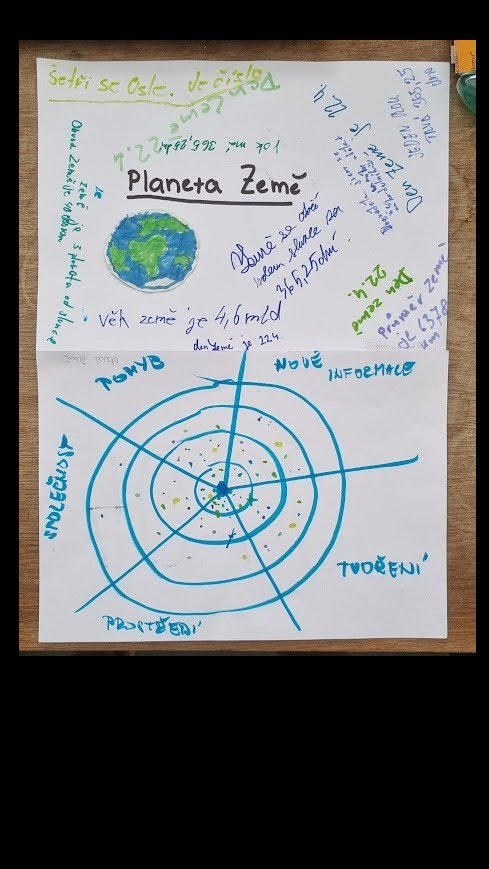 Šetři se
Den Země 22.4.
rok má 365,25 dní
Planeta Země
Země se otočí
kolem slunce za
365,25 dní.
Věk země je 4,6 mld
den Země je 22.4.
Den Země je 22.4.
JEDEN ROK
TRVÁ 365,25
dne
Den země
22.4.
Průměr Země
je 6378
km
Země je
planeta od slunce
POHYB
NOVÉ
INFORMACE
SPOLEČNOST
TVOŘENÍ
PROSTŘEDÍ